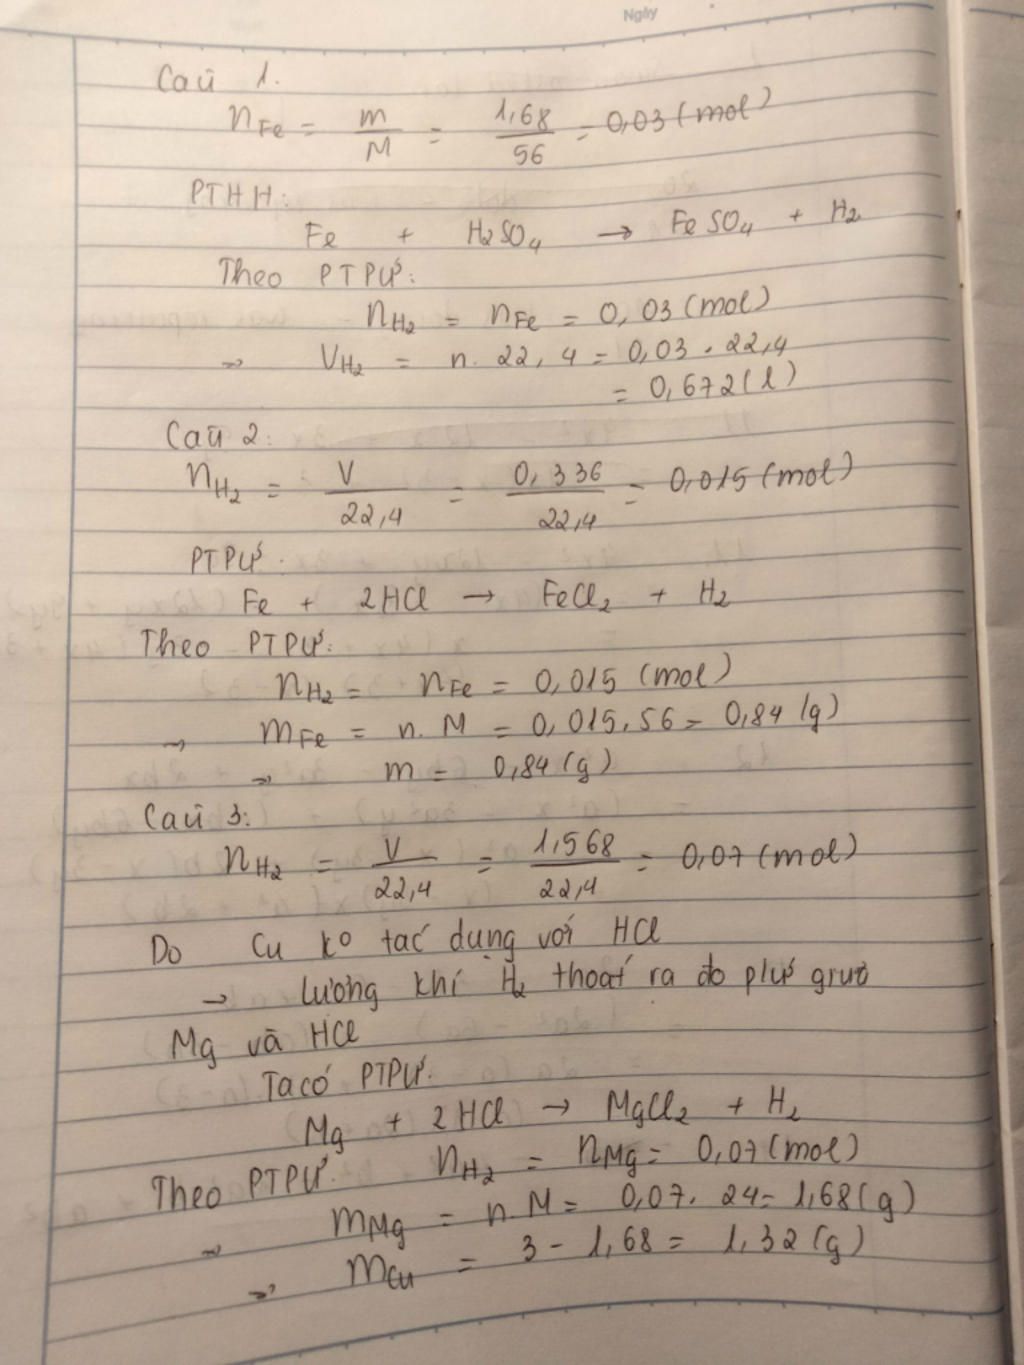 Ngày
Câu 1.
nFe = m/M = 1,68/56 = 0,03 (mol)
PTHH:
Fe + H2SO4 → FeSO4 + H2
Theo PTPƯ:
nH2 = nFe = 0,03 (mol)
→ VH2 = n. 22,4 = 0,03 . 22,4
= 0,672 (l)
Câu 2:
nH2 = V/22,4 = 0,336/22,4 = 0,015 (mol)
PTPƯ:
Fe + 2HCl → FeCl2 + H2
Theo PTPƯ:
nH2 = nFe = 0,015 (mol)
→ mFe = n. M = 0,015.56 = 0,84 (g)
→ m = 0,84 (g)
Câu 3:
nH2 = V/22,4 = 1,568/22,4 = 0,07 (mol)
Do Cu ko tác dụng với HCl
→ lượng khí H2 thoát ra do pư giữa
Mg và HCl
Ta có PTPƯ:
Mg + 2HCl → MgCl2 + H2
Theo PTPƯ: nH2 = nMg = 0,07 (mol)
→ mMg = n. M = 0,07. 24 = 1,68 (g)
→ mCu = 3 - 1,68 = 1,32 (g)